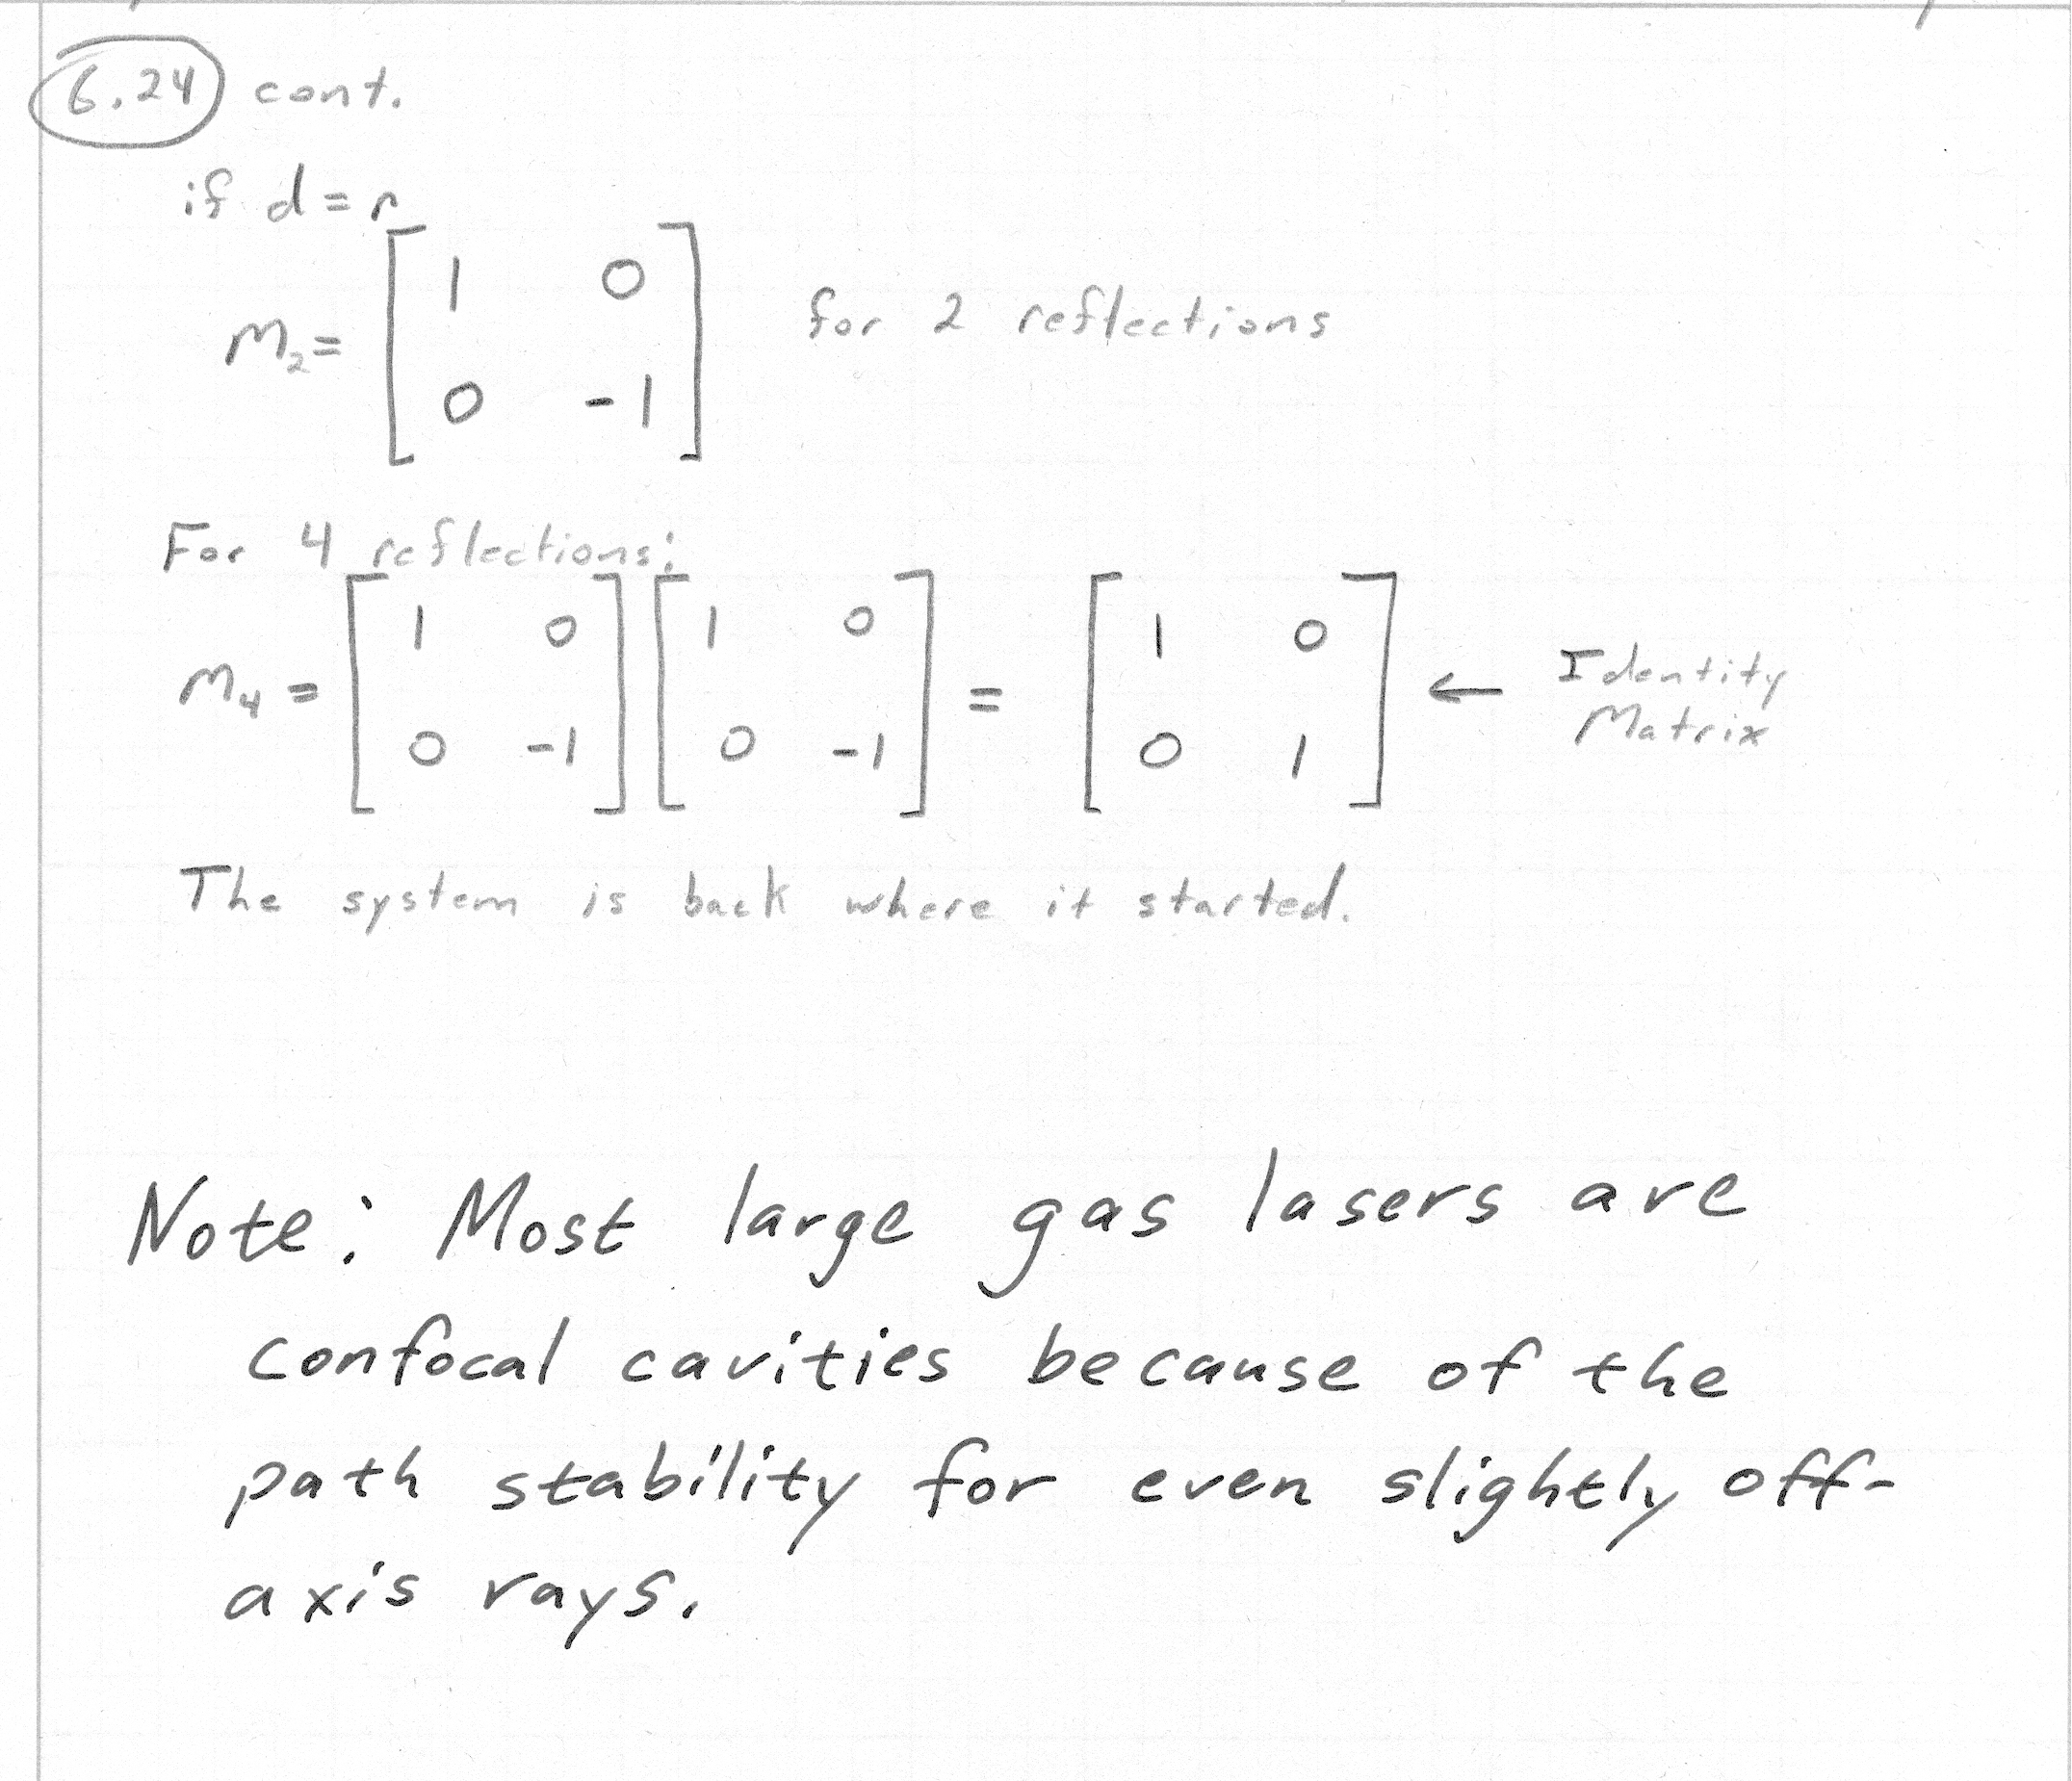 6.24 cont.
if d=r
M₂= [1 0
0 -1] for 2 reflections
For 4 reflections:
M₄ = [1 0
0 -1] [1 0
0 -1] = [1 0
0 1] ← Identity
Matrix
The system is back where it started.
Note: Most large gas lasers are
confocal cavities because of the
path stability for even slightly off-
axis rays.